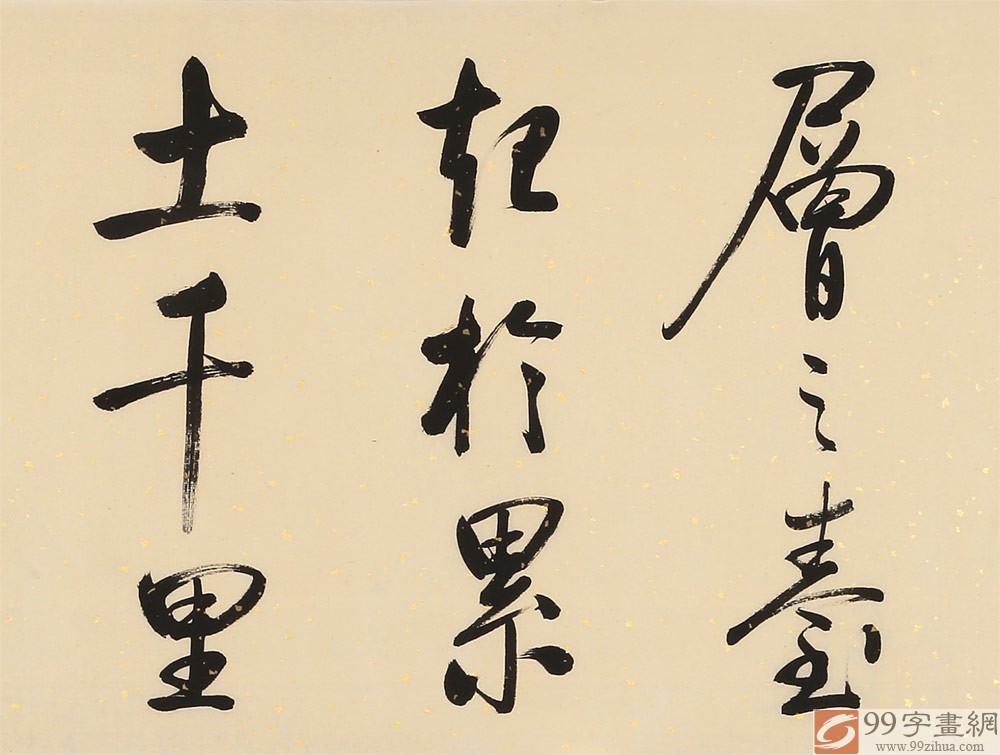 層之臺
起於累
土千里
99字畫網
www.99zihua.com